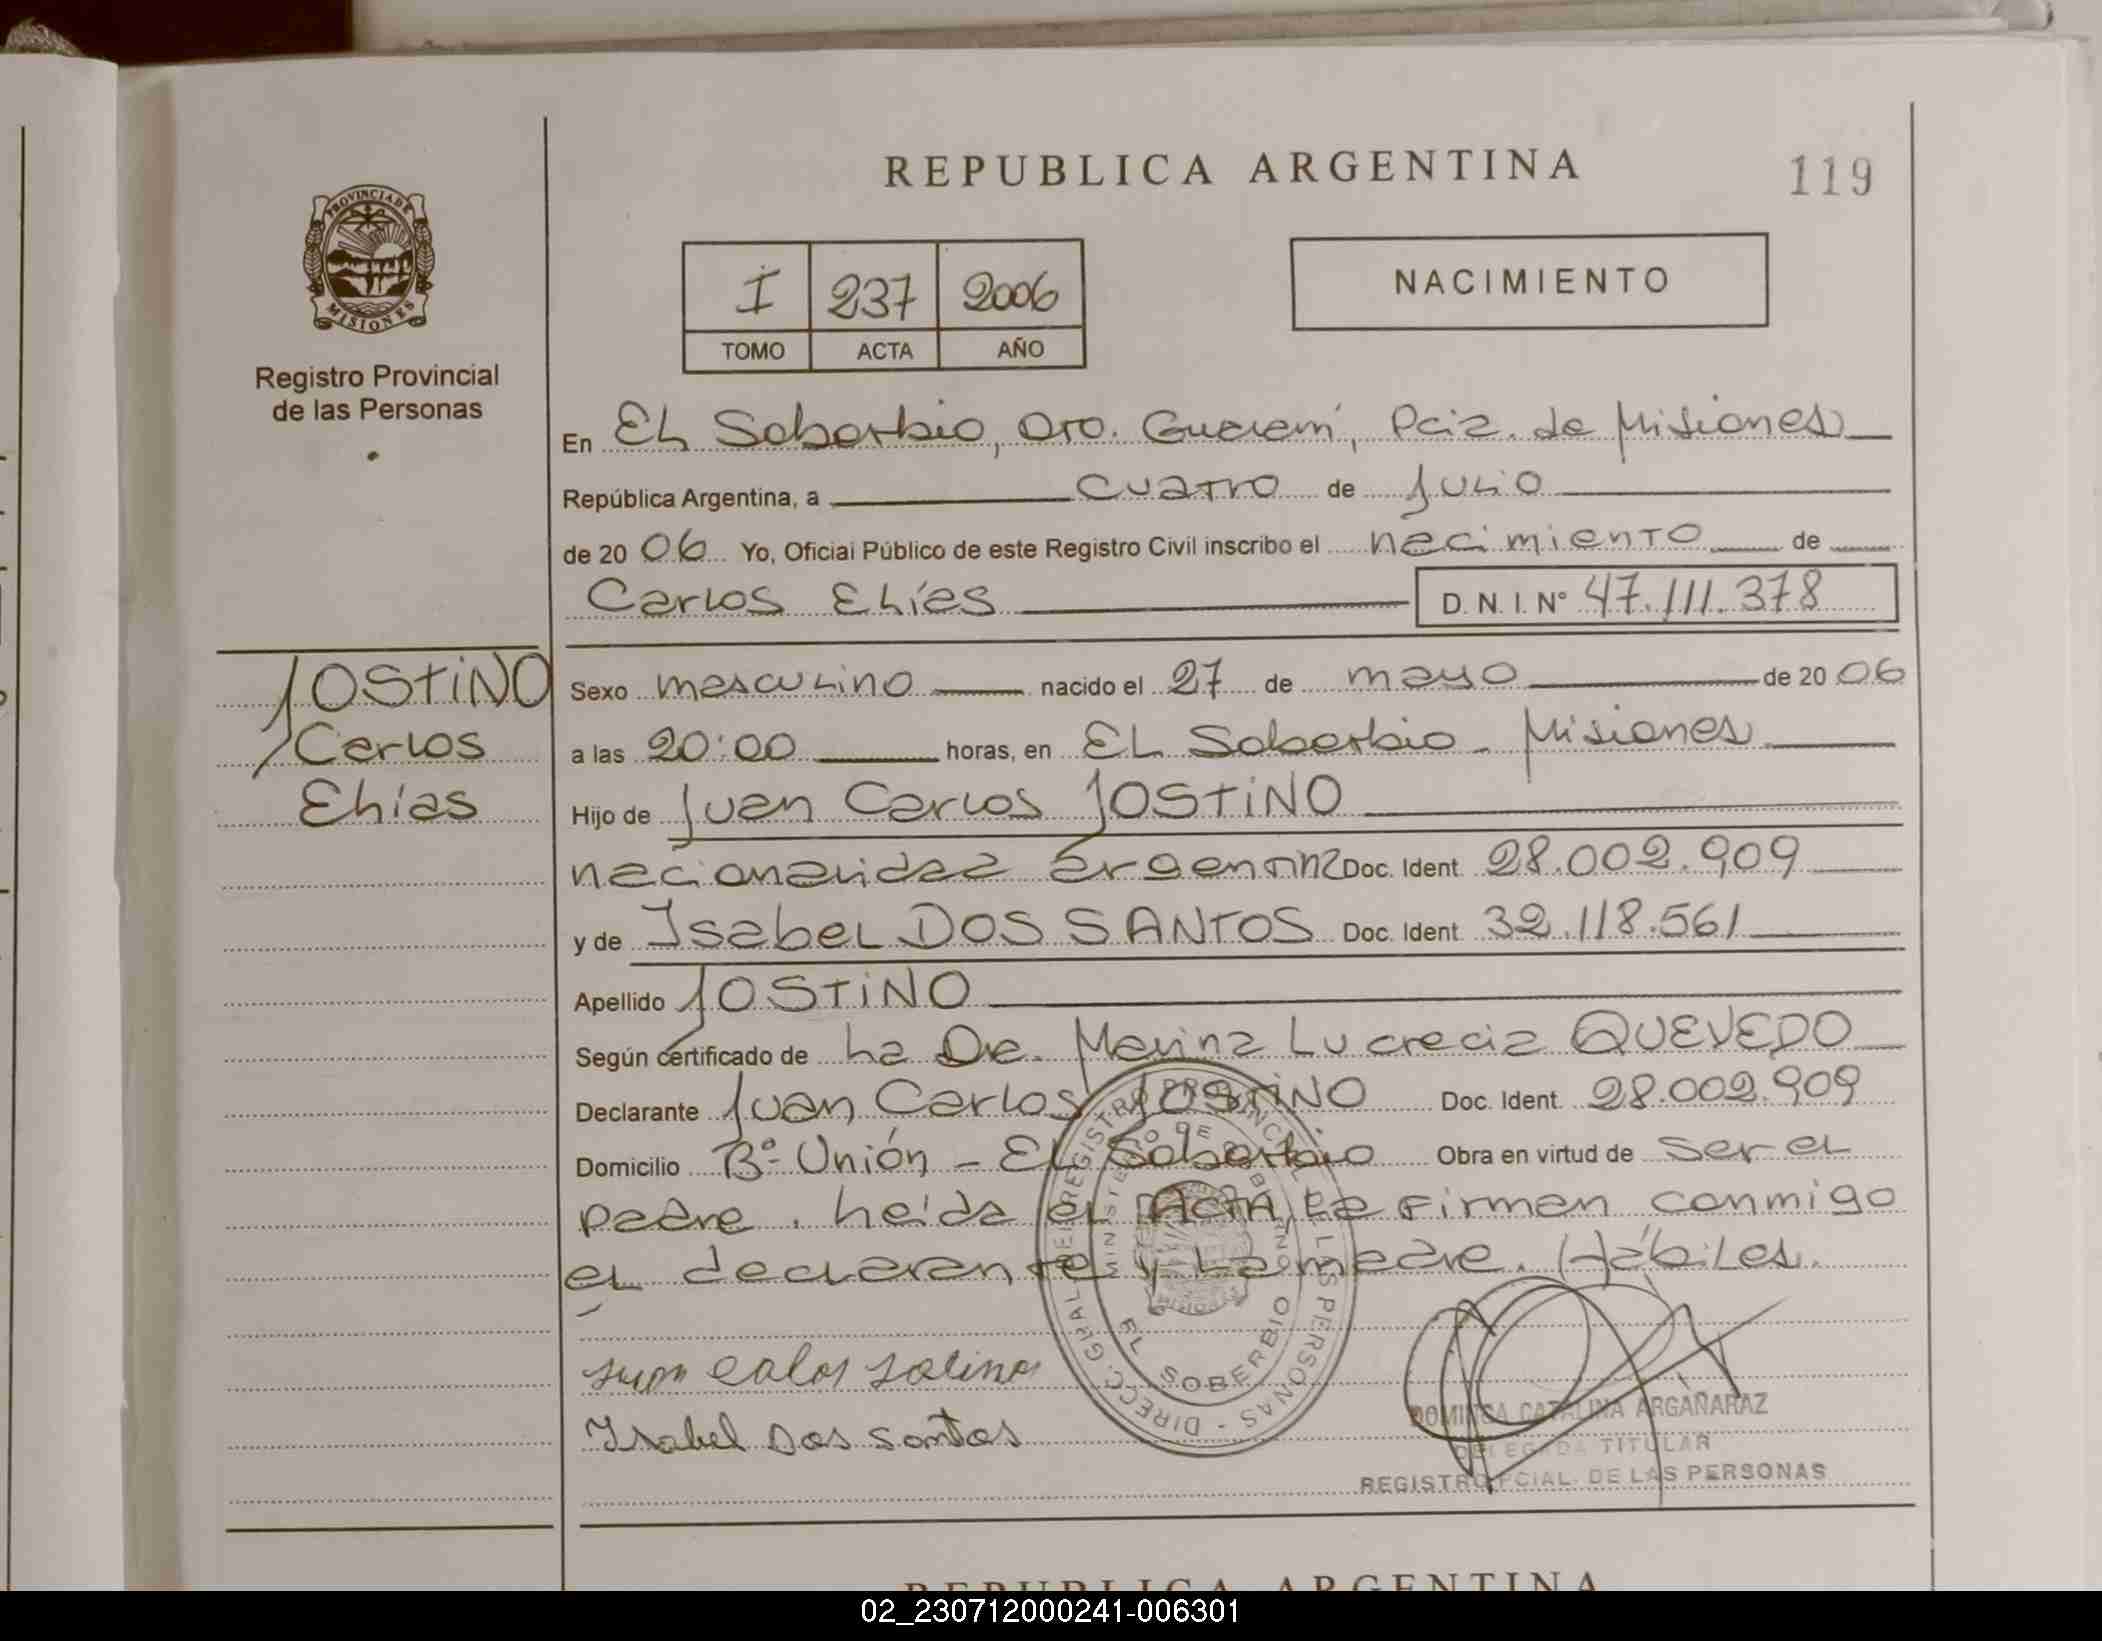 REPUBLICA ARGENTINA
119
PROVINCIA DE
MISIONES
Registro Provincial
de las Personas
I 237 2006
TOMO ACTA AÑO
NACIMIENTO
En El Soberbio, Dto. Guaraní, Pcia. de Misiones
República Argentina, a cuatro de julio
de 20 06 Yo, Oficial Público de este Registro Civil inscribo el nacimiento de
Carlos Elías D. N. I. N° 47.111.378
JOSTINO
Carlos
Elías
Sexo masculino nacido el 27 de mayo de 20 06
a las 20:00 horas, en El Soberbio - Misiones
Hijo de Juan Carlos JOSTINO
nacionalidad argentina Doc. Ident. 28.002.909
y de Isabel DOS SANTOS Doc. Ident. 32.118.561
Apellido JOSTINO
Según certificado de La Dra. Marina Lucrecia QUEVEDO
Declarante Juan Carlos JOSTINO Doc. Ident. 28.002.909
Domicilio B° Unión - El Soberbio Obra en virtud de ser el
padre. Leída el Acta La Firman conmigo
el declarante y La madre. Hábiles.
Isabel Dos Santos
DIRECC. GRAL. DE REGISTRO PROVINCIAL DE LAS PERSONAS
MINISTERIO DE GOBIERNO
EL SOBERBIO
DOMINGA CATALINA ARGAÑARAZ
DELEGADA TITULAR
REGISTRO PCIAL. DE LAS PERSONAS
REPUBLICA ARGENTINA
02_230712000241-006301